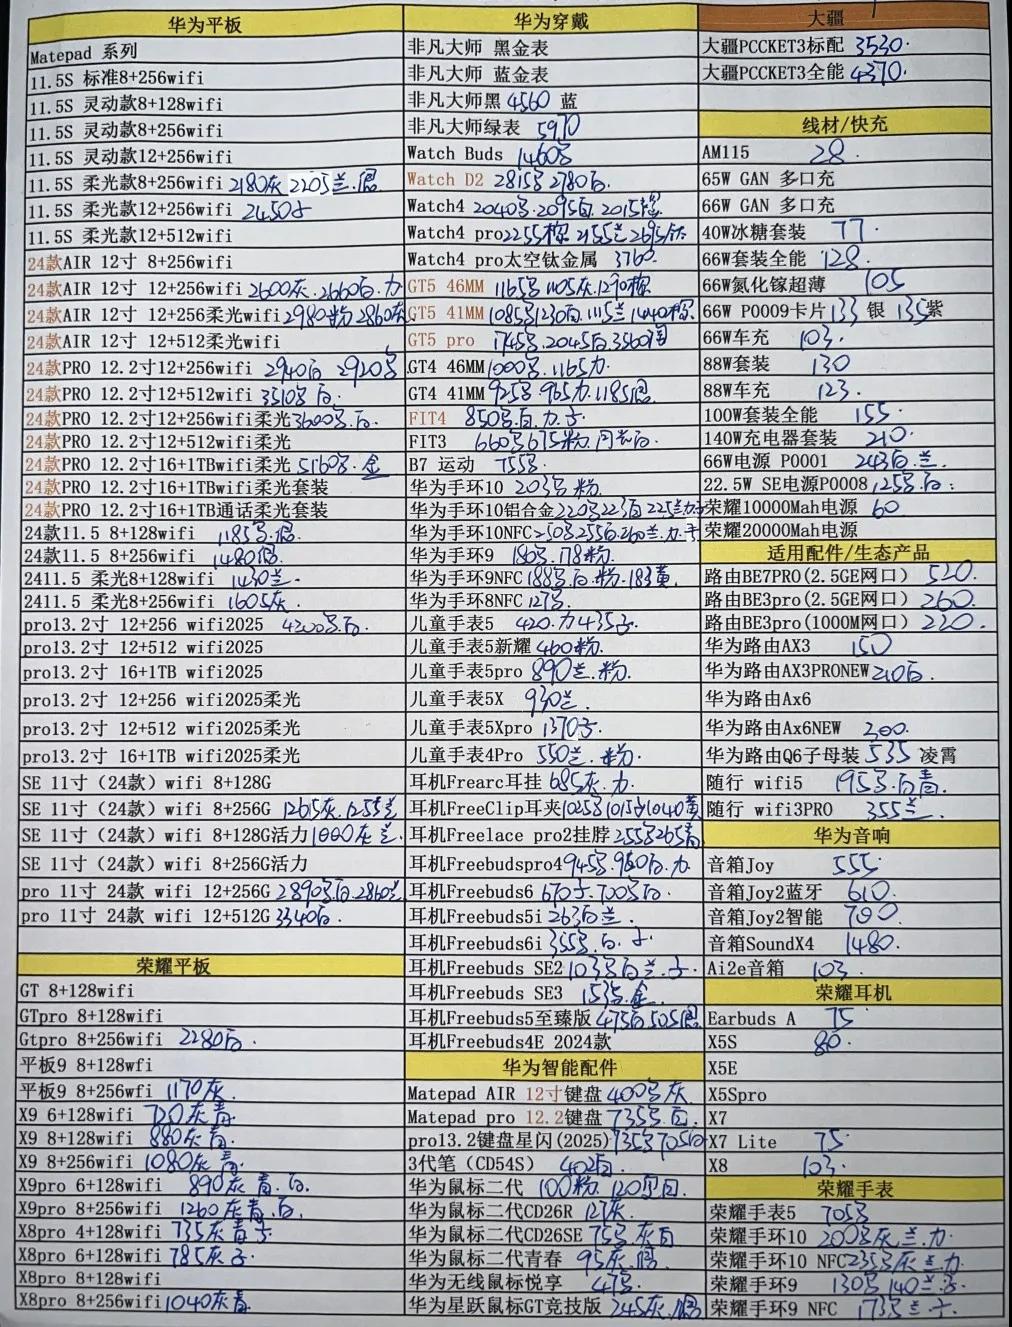 华为平板
Matepad 系列
11.5S 标准8+256wifi
11.5S 灵动款8+128wifi
11.5S 灵动款8+256wifi
11.5S 灵动款12+256wifi
11.5S 柔光款8+256wifi 2180灰 2205兰.
11.5S 柔光款12+256wifi 2450
11.5S 柔光款12+512wifi
24款AIR 12寸 8+256wifi
24款AIR 12寸 12+256wifi 2600灰.2660白.力
24款AIR 12寸 12+256柔光wifi 2980粉 2860灰
24款AIR 12寸 12+512柔光wifi
24款PRO 12.2寸12+256wifi 2940白 2920
24款PRO 12.2寸12+512wifi 3510 白.
24款PRO 12.2寸12+256wifi柔光 3600 .白.
24款PRO 12.2寸12+512wifi柔光
24款PRO 12.2寸16+1TBwifi柔光 5160 .金
24款PRO 12.2寸16+1TBwifi柔光套装
24款PRO 12.2寸16+1TB通话柔光套装
24款11.5 8+128wifi 1185
24款11.5 8+256wifi 1480
2411.5 柔光8+128wifi 1430兰.
2411.5 柔光8+256wifi 1605灰.
pro13.2寸 12+256 wifi2025 4200 白.
pro13.2寸 12+512 wifi2025
pro13.2寸 16+1TB wifi2025
pro13.2寸 12+256 wifi2025柔光
pro13.2寸 12+512 wifi2025柔光
pro13.2寸 16+1TB wifi2025柔光
SE 11寸（24款）wifi 8+128G
SE 11寸（24款）wifi 8+256G 1265灰.1255兰
SE 11寸（24款）wifi 8+128G活力 1000灰兰.
SE 11寸（24款）wifi 8+256G活力
pro 11寸 24款 wifi 12+256G 2890 白.2860兰
pro 11寸 24款 wifi 12+512G 3340白.
荣耀平板
GT 8+128wifi
GTpro 8+128wifi
Gtpro 8+256wifi 2280白.
平板9 8+128wifi
平板9 8+256wifi 1170灰
X9 6+128wifi 720灰青
X9 8+128wifi 880灰青.
X9 8+256wifi 1080灰 青.
X9pro 6+128wifi 890灰 青.白.
X9pro 8+256wifi 1260灰青.白.
X8pro 4+128wifi 735灰青
X8pro 6+128wifi 785灰
X8pro 8+128wifi
X8pro 8+256wifi 1040灰青
华为穿戴
非凡大师 黑金表
非凡大师 蓝金表
非凡大师黑 4560 蓝
非凡大师绿表 5970
Watch Buds 1460
Watch D2 2815 2780白.
Watch4 2040 .2095白.2015
Watch4 pro 2255棕 2155兰 2695钛
Watch4 pro太空钛金属 3760.
GT5 46MM 1165 1105灰.1290棕
GT5 41MM 1085 1230白.1115兰 1440棕.
GT5 pro 1745 .2045白.3560
GT4 46MM 1000 .1165力.
GT4 41MM 925 .965力.1185
FIT4 850 .白.力.
FIT3 660 675粉.
B7 运动 755
华为手环10 203 粉.
华为手环10铝合金 220 223白 225兰力
华为手环10NFC 250 255白 260兰.力.
华为手环9 180 .178粉.
华为手环9NFC 188 .白.粉.183黄
华为手环8NFC 127
儿童手表5 420.力 435
儿童手表5新耀 460粉.
儿童手表5pro 890兰.粉
儿童手表5X 930兰
儿童手表5Xpro 1370
儿童手表4Pro 550兰.粉.
耳机Frearc耳挂 685灰.力.
耳机FreeClip耳夹 1025 1015 1040黄
耳机Freelace pro2挂脖 255 265青
耳机Freebudspro4 945 .960白.力
耳机Freebuds6 670 .700 白.
耳机Freebuds5i 263白兰.
耳机Freebuds6i 355 .白.
耳机Freebuds SE2 103 白兰.
耳机Freebuds SE3 153 .金.
耳机Freebuds5至臻版 475白505
耳机Freebuds4E 2024款
华为智能配件
Matepad AIR 12寸键盘 400 灰
Matepad pro 12.2键盘 735 .白.
pro13.2键盘星闪(2025) 735 705白
3代笔（CD54S） 402白.
华为鼠标二代 100粉.120
华为鼠标二代CD26R 127灰.
华为鼠标二代CD26SE 75 .灰白
华为鼠标二代青春 95灰.
华为无线鼠标悦享 47
华为星跃鼠标GT竞技版 245灰.
大疆
大疆PCCKET3标配 3530.
大疆PCCKET3全能 4370.
线材/快充
AM115 28.
65W GAN 多口充
66W GAN 多口充
40W冰糖套装 77.
66W套装全能 128.
66W氮化镓超薄 105
66W P0009卡片 133 银 135紫
66W车充 103.
88W套装 130
88W车充 123.
100W套装全能 155.
140W充电器套装 210.
66W电源 P0001 243白.兰.
22.5W SE电源P0008 125 .白.
荣耀10000Mah电源 60.
荣耀20000Mah电源
适用配件/生态产品
路由BE7PRO(2.5GE网口) 520.
路由BE3pro(2.5GE网口) 260.
路由BE3pro(1000M网口) 220.
华为路由AX3 150
华为路由AX3PRONEW 210白.
华为路由Ax6
华为路由Ax6NEW 300.
华为路由Q6子母装 535 凌霄
随行 wifi5 195 白青.
随行 wifi3PRO 355兰.
华为音响
音箱Joy 555.
音箱Joy2蓝牙 610.
音箱Joy2智能 700.
音箱SoundX4 1480.
Ai2e音箱 103.
荣耀耳机
Earbuds A 75
X5S 80.
X5E
X5Spro
X7
X7 Lite 75.
X8 103.
荣耀手表
荣耀手表5 705
荣耀手环10 200 灰兰.力.
荣耀手环10 NFC 235 灰兰.力
荣耀手环9 130 140兰.
荣耀手环9 NFC 173 兰.